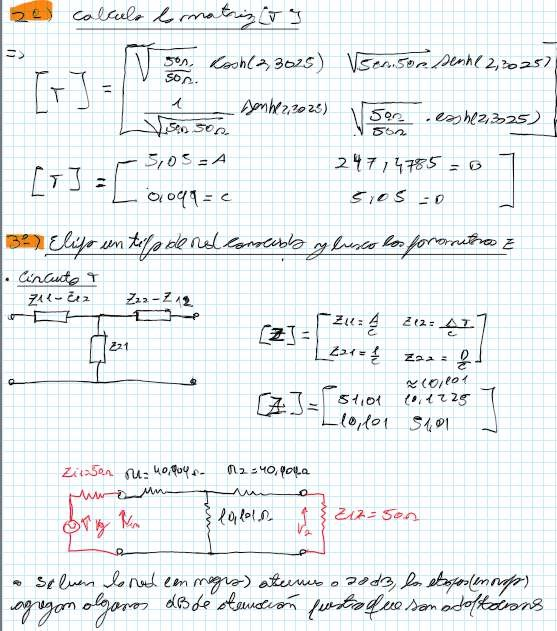 2º) calculo la matriz [T]
=>
[T] = [ √(50Ω/50Ω) cosh(2,3025) √(50Ω.50Ω) senh(2,3025)
1/√(50.50Ω) senh(2,3025) √(50Ω/50Ω) . cosh(2,3025) ]
[T] = [ 5,05 = A 247,4785 = B
0,099 = C 5,05 = D ]
3º) Elijo un tipo de red conocida y busco los parametros Z
• Circuito T
Z11-Z12 Z22-Z12
Z21
[Z] = [ Z11 = A/C Z12 = ΔT/C
Z21 = 1/C Z22 = D/C ]
≈10,101
[Z] = [ 51,01 10,1225
10,101 51,01 ]
Zi1=50Ω R1=40,909Ω R2=40,909Ω
Vg Vin 10,101Ω V2 Zi2=50Ω
• Si bien la red (en negro) atenua a 20dB, las etapas (en rojo)
agregan algunos dB de atenuación puesto que son adaptadoras